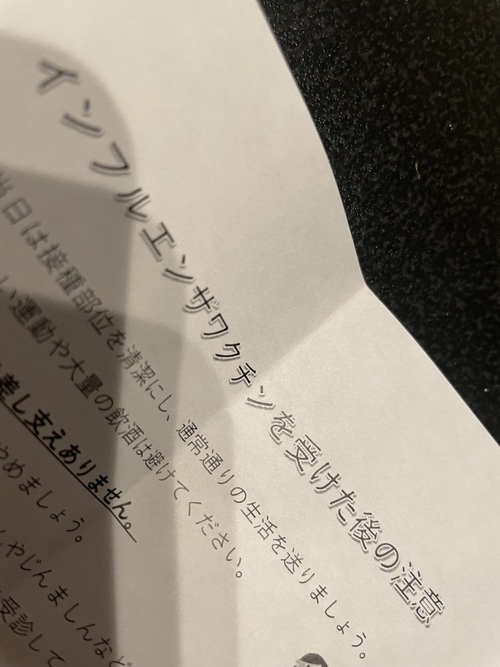 インフルエンザワクチンを受けた後の注意
当日は接種部位を清潔にし、通常通りの生活を送りましょう。
い運動や大量の飲酒は避けてください。
差し支えありません。
やめましょう。
やじんましんなど
受診して